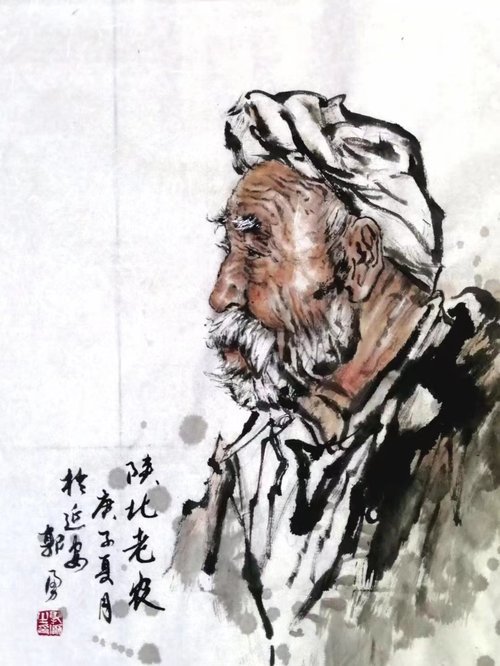 陕北老农
庚子夏月
於延安
郭勇